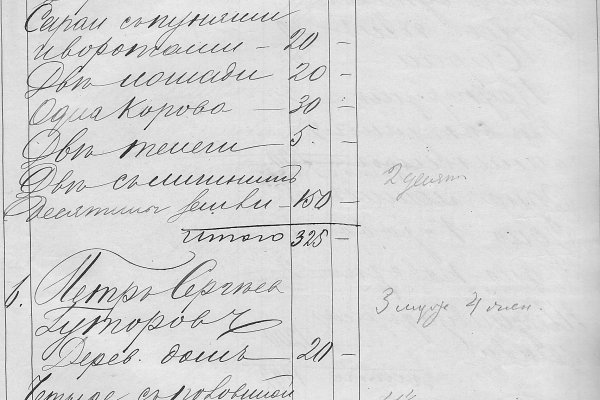 Сараи съ кунями
и воротами - 20 -
Двѣ лошади 20 -
Одна Корова - 30 -
Двѣ телеги 5. -
Двѣ съ
Десятины земли - 150 - 2 десят
Итого 325 -
6. Петръ Сергѣев
Гуторовъ 3 муж 4 жен.
Дерев. домъ - 20 -
съ половиной